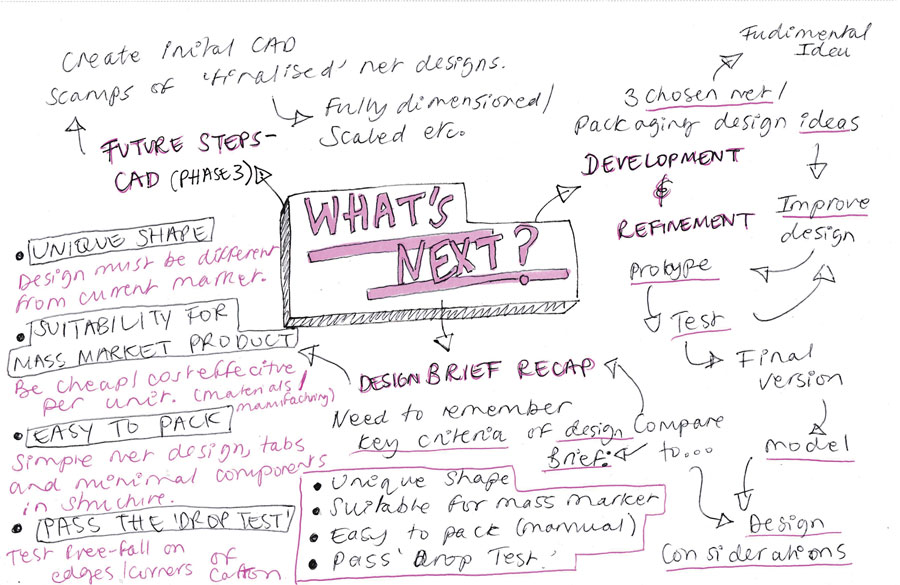 Create inital CAD
scamps of 'finalised' net designs.
Fully dimensioned/
Scaled etc.
FUTURE STEPS-
CAD (PHASE 3)
WHAT'S
NEXT?
Fudimental
Ideu
3 chosen net/
packaging design ideas
DEVELOPMENT
&
REFINEMENT
Improve
design
protype
Test
Final
version
model
Design
considerations
Compare
to...
DESIGN BRIEF RECAP
Need to remember
key criteria of design
Brief:
• Unique shape
• Suitable for mass market
• Easy to pack (manual)
• Pass 'Drop Test'
• UNIQUE SHAPE
Design must be different
from current market.
• SUITABILITY FOR
MASS MARKET PRODUCT
Be cheap/cost effecitve
per unit. (materials/
manufacturing)
• EASY TO PACK
Simple net design, tabs
and minimal components
in structure.
• PASS THE 'DROP TEST'
Test free-fall on
edges/corners of carton